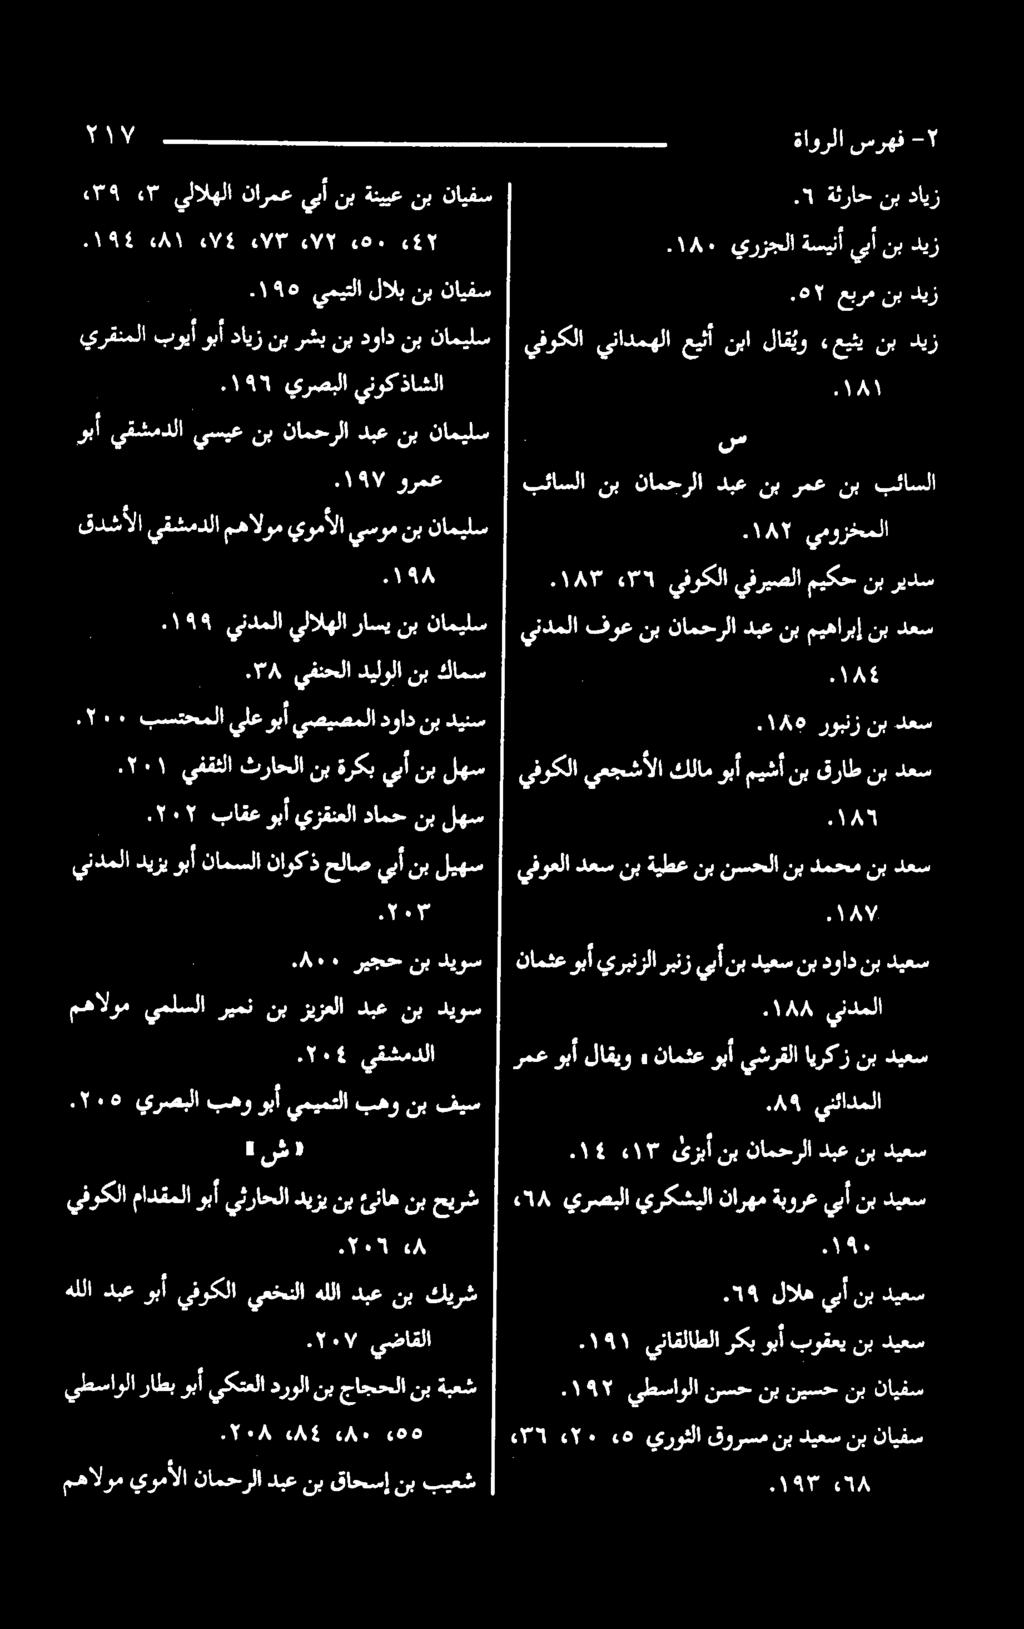 ٢- فهرس الرواة ٢١٧
زياد بن حارثة ٦.
زيد بن أبي أنيسة الجزري ١٨٠.
زيد بن مربع ٥٢.
زيد بن يثيع، ويُقال ابن أثيع الهمداني الكوفي
١٨١.
س
السائب بن عمر بن عبد الرحمان بن السائب
المخزومي ١٨٢.
سدير بن حكيم الصيرفي الكوفي ٣٦، ١٨٣.
سعد بن إبراهيم بن عبد الرحمان بن عوف المدني
١٨٤.
سعد بن زنبور ١٨٥.
سعد بن طارق بن أشيم أبو مالك الأشجعي الكوفي
١٨٦.
سعد بن محمد بن الحسن بن عطية بن سعد العوفي
١٨٧.
سعيد بن داود بن سعيد بن أبي زنبر الزنبري أبو عثمان
المدني ١٨٨.
سعيد بن زكريا القرشي أبو عثمان، ويقال أبو عمر
المدائني ٨٩.
سعيد بن عبد الرحمان بن أبزىٰ ١٣، ١٤.
سعيد بن أبي عروبة مهران اليشكري البصري ٦٨،
١٩٠.
سعيد بن أبي هلال ٦٩.
سعيد بن يعقوب أبو بكر الطالقاني ١٩١.
سفيان بن حسين بن حسن الواسطي ١٩٢.
سفيان بن سعيد بن مسروق الثوري ٥، ٢٠، ٣٦،
٦٨، ١٩٣.
سفيان بن عيينة بن أبي عمران الهلالي ٣، ٣٩،
٤٢، ٥٠، ٧٢، ٧٣، ٧٤، ٨١، ١٩٤.
سفيان بن بلال التيمي ١٩٥.
سليمان بن داود بن بشر بن زياد أبو أيوب المنقري
الشاذكوني البصري ١٩٦.
سليمان بن عبد الرحمان بن عيسي الدمشقي أبو
عمرو ١٩٧.
سليمان بن موسي الأموي مولاهم الدمشقي الأشدق
١٩٨.
سليمان بن يسار الهلالي المدني ١٩٩.
سماك بن الوليد الحنفي ٣٨.
سنيد بن داود المصيصي أبو علي المحتسب ٢٠٠.
سهل بن أبي بكرة بن الحارث الثقفي ٢٠١.
سهل بن حماد العنقزي أبو عقاب ٢٠٢.
سهيل بن أبي صالح ذكوان السمان أبو يزيد المدني
٢٠٣.
سويد بن حجير ٨٠٠.
سويد بن عبد العزيز بن نمير السلمي مولاهم
الدمشقي ٢٠٤.
سيف بن وهب التميمي أبو وهب البصري ٢٠٥.
«ش»
شريح بن هانئ بن يزيد الحارثي أبو المقدام الكوفي
٨، ٢٠٦.
شريك بن عبد الله النخعي الكوفي أبو عبد الله
القاضي ٢٠٧.
شعبة بن الحجاج بن الورد العتكي أبو بطار الواسطي
٥٥، ٨٠، ٨٤، ٢٠٨.
شعيب بن إسحاق بن عبد الرحمان الأموي مولاهم